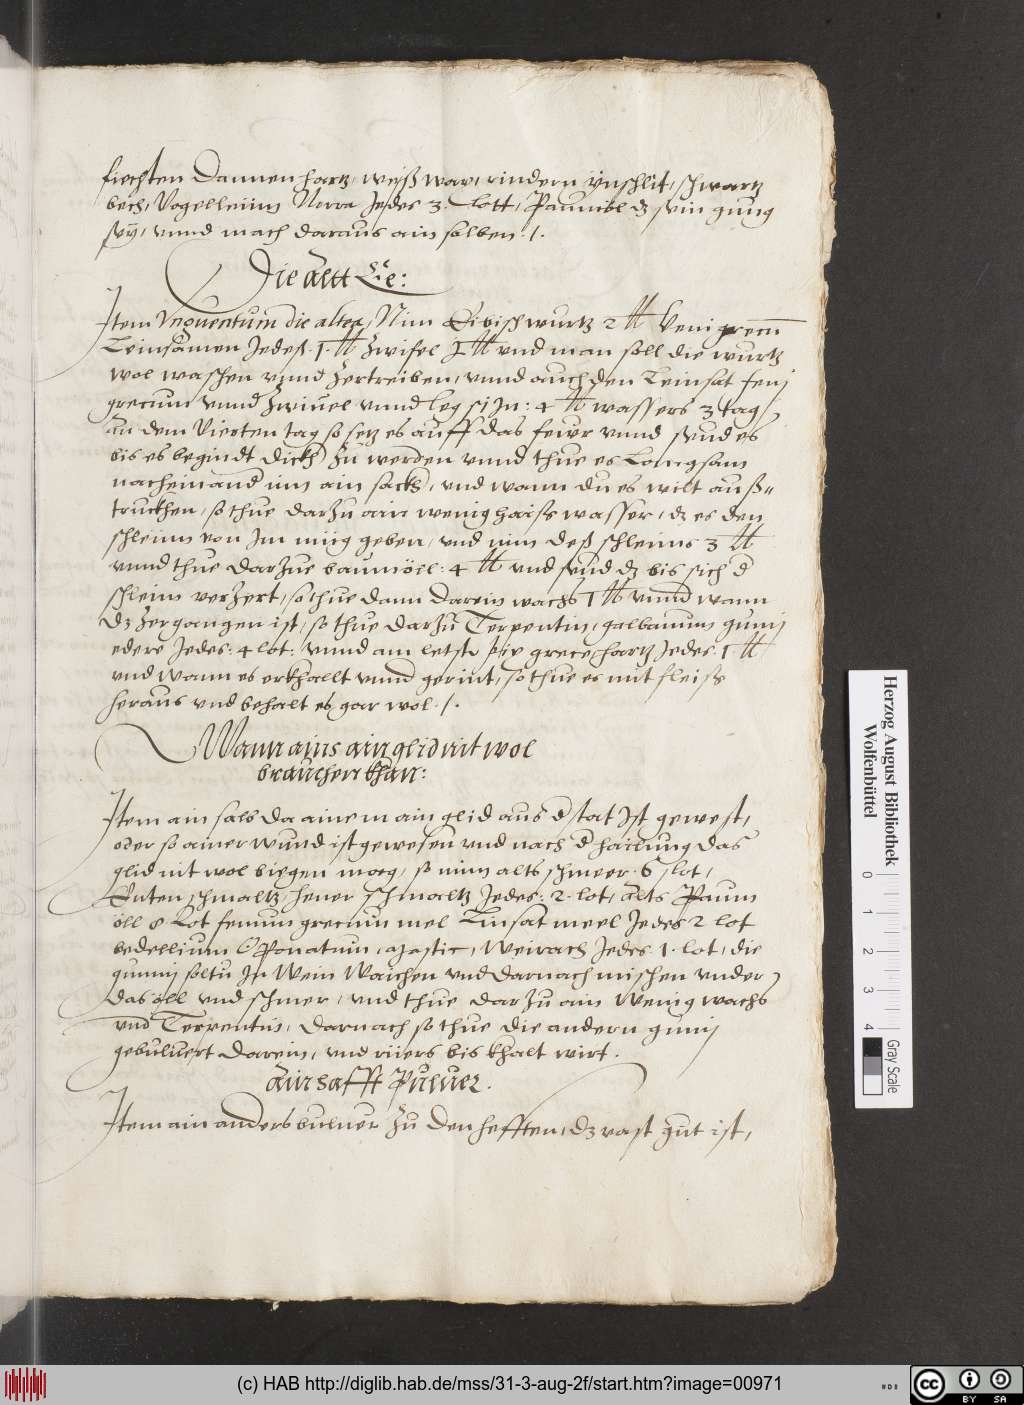 fiechten Dannen hartz, weiß wax, rindern ynschlit, schwartz
bech, Vogelleiim Merra Jedes 3. Lott, Paumöl dz sein gnug
sey, vnnd mach daraus ain salben ./.
Die Altt Ee:
Item Vnguentum die altea, Nim Eibisch wurtz 2 ℔ feni grecū
Leinsamen Jedeß .1. ℔ Zwifel 1 ℔ vnd man soll die wurtz
wol waschen vnnd Zertreiben, vnnd auch den Leinsat fenj
grecum vnnd Zwiuel vnnd leg si Jn : 4 ℔ wassers 3 tag,
An dem Vierten tag so setz es auff das fewr vnnd seud es
bis es begindt Dickh Zu werden vnnd thue es Langsam
nacheinand Jnn ain sackh, vnd wann du es wilt auß-
truckhen, so thue darZu ain wenig haiß wasser, dz es den
schleiim von Jm müg geben, vnd nim deß schleims 3 ℔
vnnd thue darZue baumöll : 4 ℔ vnd seud dz bis sich d
schleim verZert, so thue dann darein wachs 1 ℔ vnnd wann
Dz Zergangen ist, so thue darZu Terpentin, galbanum gumj
edere Jedes : 4 lot : vnnd am letsten pix grece hartz Jedes .1 ℔
vnd wann es erkhallt vnnd gerint, so thue es mit fleiß
heraus vnd behalt es gar wol ./.
Wann ains ain glid nit wol
brauchen khan :
Item ain salb da ainem ain glid aus d stat Jst gewest,
oder so ainer wund ist gewesen vnd nach d hailung das
glid nit wol biegen mag, so nim alts schmeer . 6 lot,
Enten schmaltz hener schmaltz Jedes : 2 . lot, Alts Paum
öll 8 Lot fenum grecum mel Linsat meel Jedes 2 lot
bedellium Oponatum, Mastic, Weirach Jedes .1. lot, die
gummj soltu Jn Wein Waichen vnd darnach mischen vnder
das öll vnd schmer, vnd thue darZu ain Wenig wachs
vnd Terpentin, darnach so thue die andern gumj
gebuluert darein, vnd rüers bis khalt wirt .
Ain Safft Puluer .
Item ain anders buluer Zu den hefften, dz vast gut ist,
Herzog August Bibliothek
Wolfenbüttel
0 1 2 3 4
Gray Scale
(c) HAB http://diglib.hab.de/mss/31-3-aug-2f/start.htm?image=00971
cc BY SA